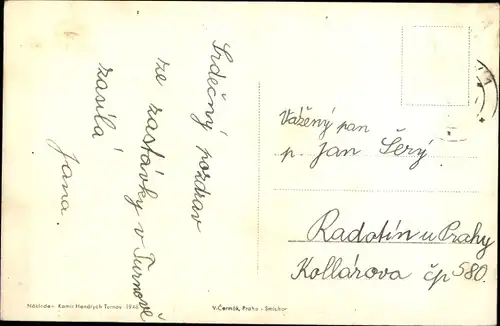 Srdečný pozdrav
ze zastávky v Turnově
zasílá
Jana.
Vážený pan
p. Jan Šerý
Radotín u Prahy
Kollárova čp 580.
Nákladem Kamil Hendrych Turnov 1946
V. Černák, Praha - Smíchov